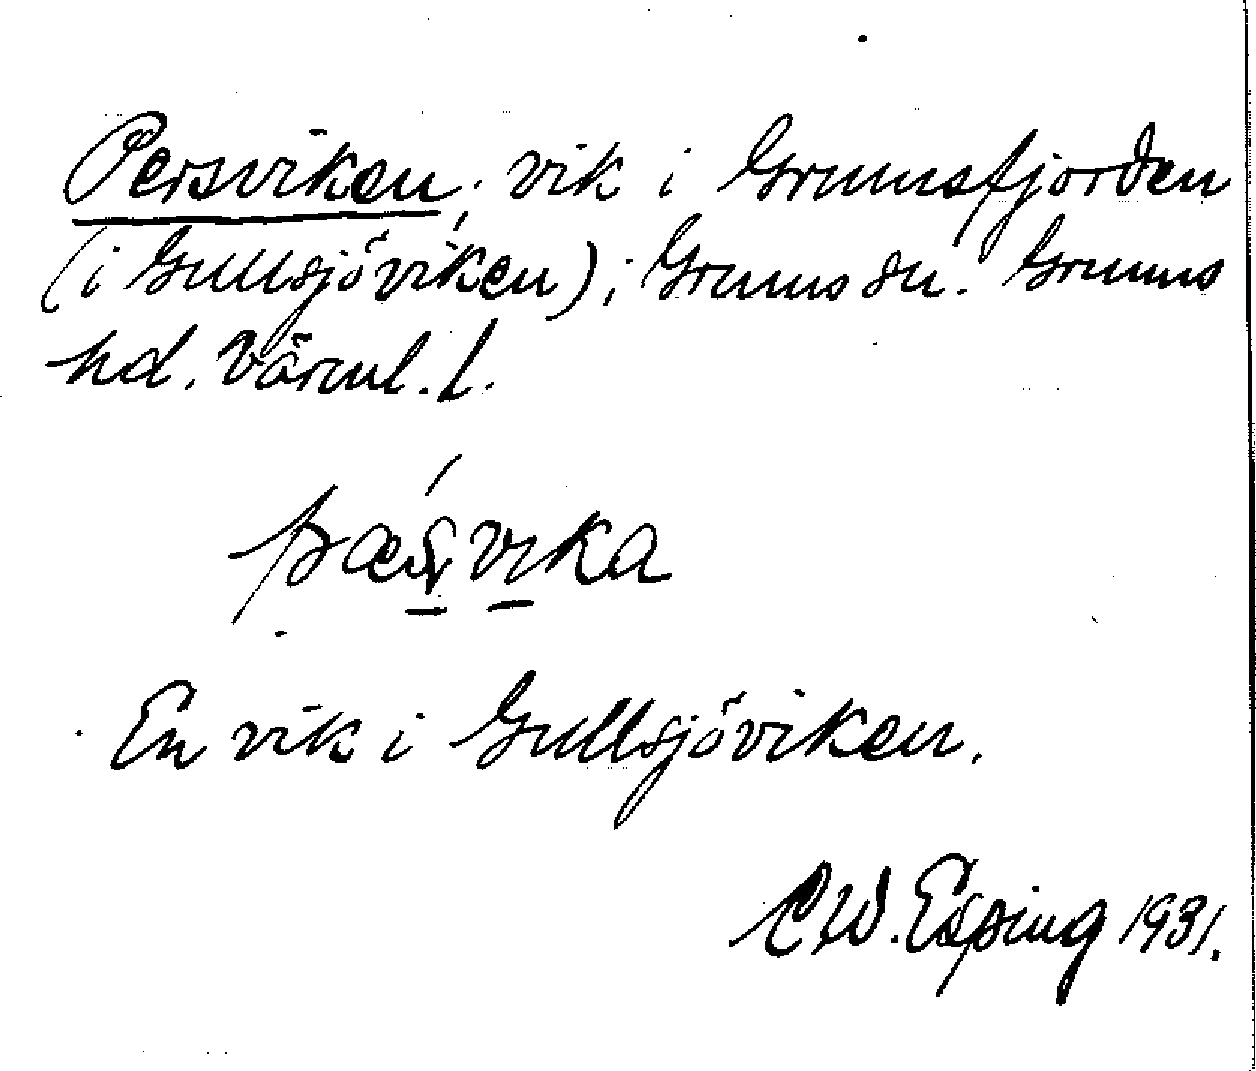 Persviken, vik i Grumsfjorden
(i Gullsjöviken); Grums sn. Grums
hd. Värml. l.
pæ̂s̨vika
En vik i Gullsjöviken.
C W. Esping 1931.